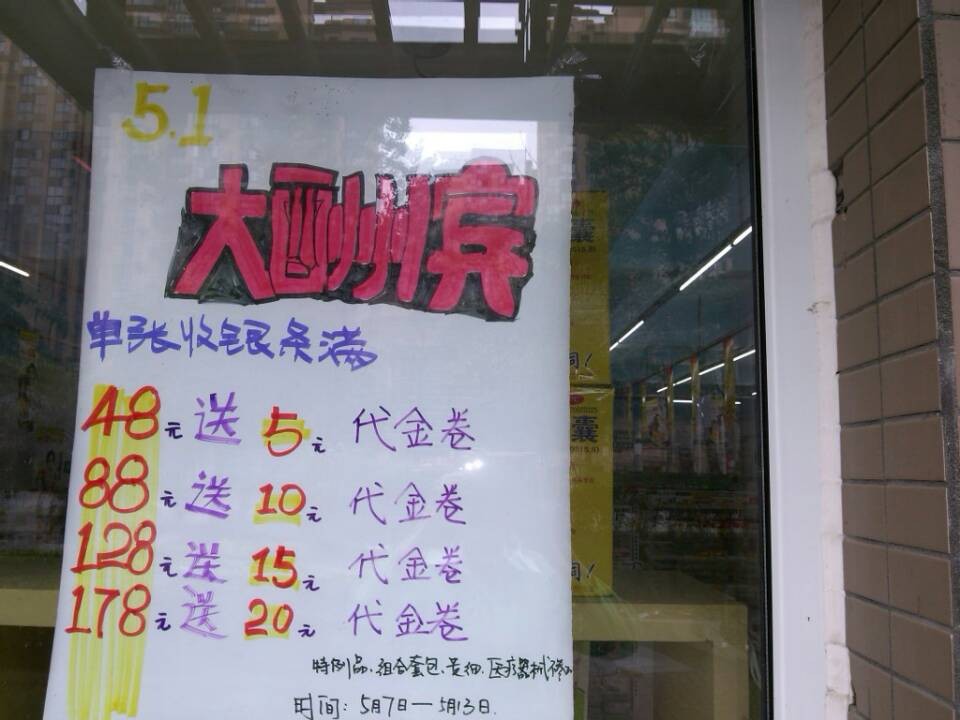 5.1
大酬宾
单张收银条满
48元送5元 代金卷
88元送10元 代金卷
128元送15元 代金卷
178元送20元 代金卷
特例品、组合套包、贵细、医疗器械不参
时间：5月7日—5月13日
囊
同！
囊
同！